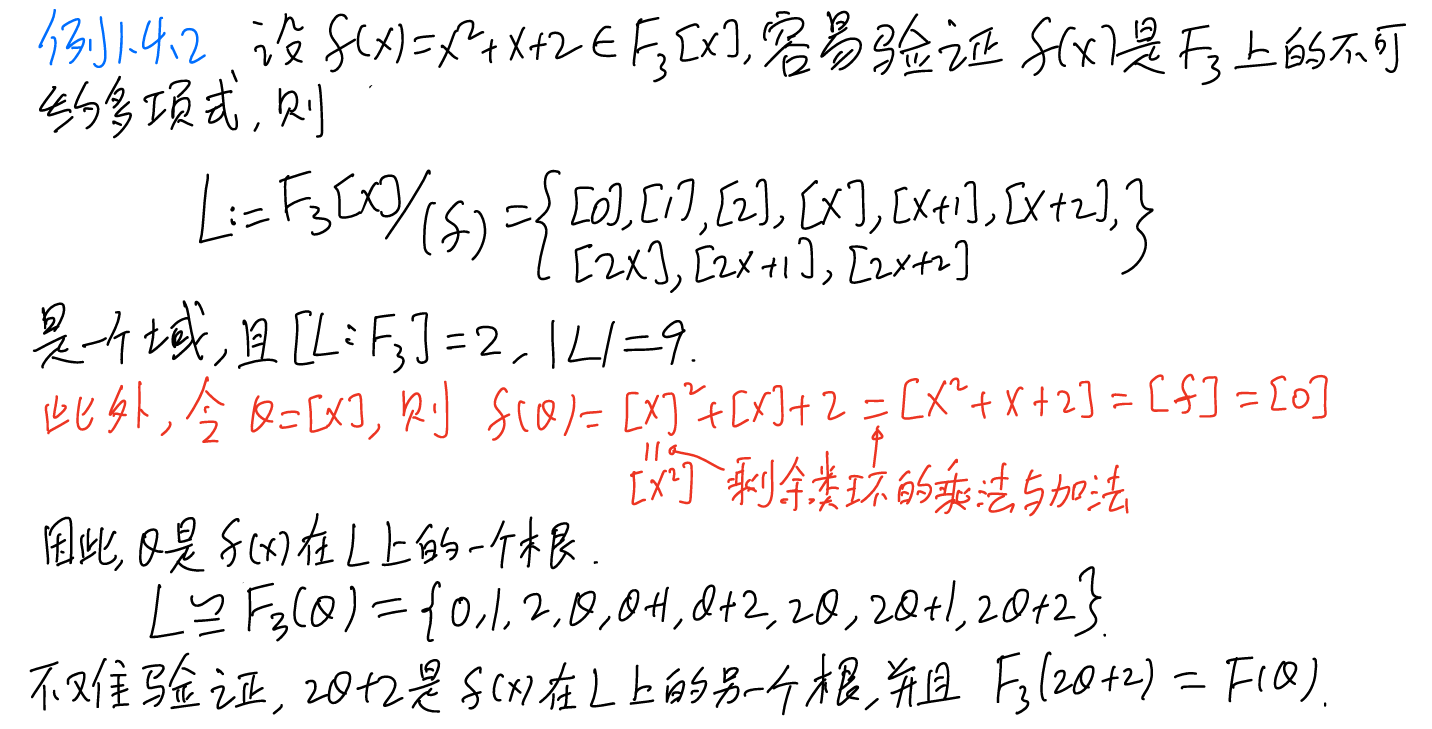 例1.4.2 设 f(x)=x²+x+2∈F₃[x], 容易验证 f(x)是 F₃ 上的不可
约多项式, 则
L:=F₃[x]/(f)={[0],[1],[2],[x],[x+1],[x+2],
[2x],[2x+1],[2x+2]}
是一个域, 且[L:F₃]=2, |L|=9.
此外, 令 θ=[x], 则 f(θ)=[x]²+[x]+2=[x²+x+2]=[f]=[0]
[x²] 剩余类环的乘法与加法
因此, θ是 f(x)在 L 上的一个根.
L≌F₃(θ)={0,1,2,θ,θ+1,θ+2,2θ,2θ+1,2θ+2}.
不难验证, 2θ+2是 f(x)在 L 上的另一个根, 并且 F₃(2θ+2)=F(θ).